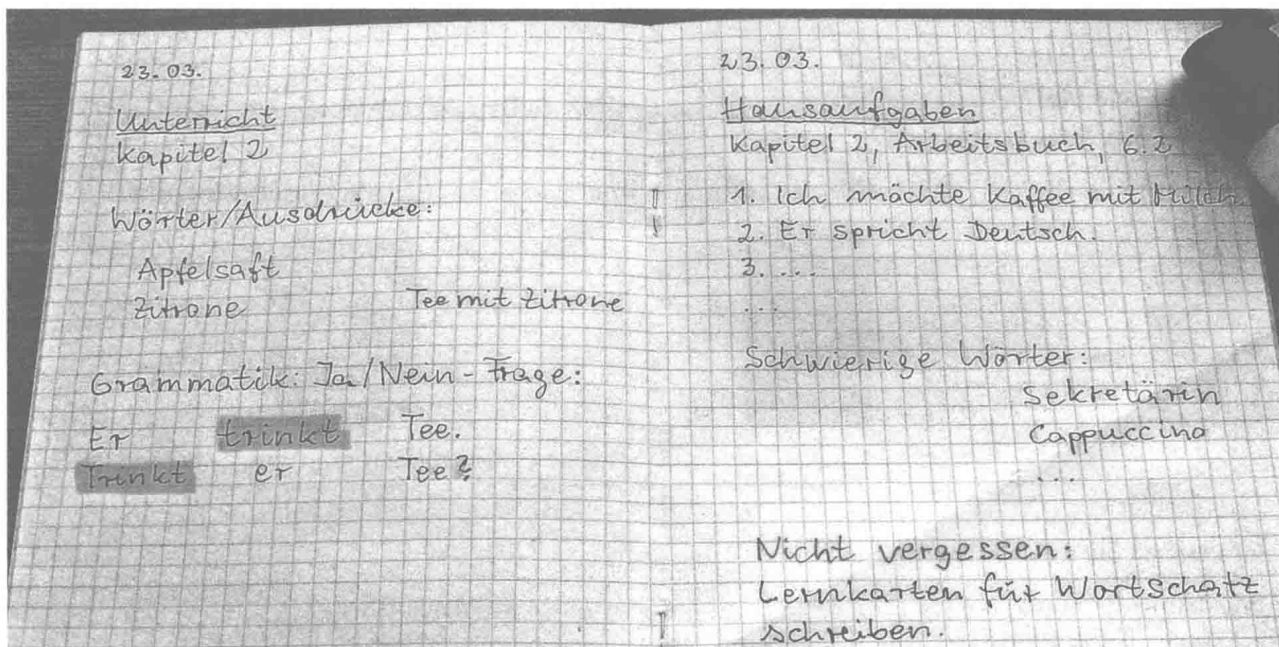 23.03.
Unterricht
Kapitel 2
Wörter/Ausdrücke:
Apfelsaft
Zitrone Tee mit Zitrone
Grammatik: Ja/Nein-Frage:
Er trinkt Tee.
Trinkt er Tee?
23.03.
Hausaufgaben
Kapitel 2, Arbeitsbuch, 6.2
1. Ich möchte Kaffee mit Milch.
2. Er spricht Deutsch.
3. ...
...
Schwierige Wörter:
Sekretärin
Cappuccino
...
Nicht vergessen:
Lernkarten für Wortschatz
schreiben.